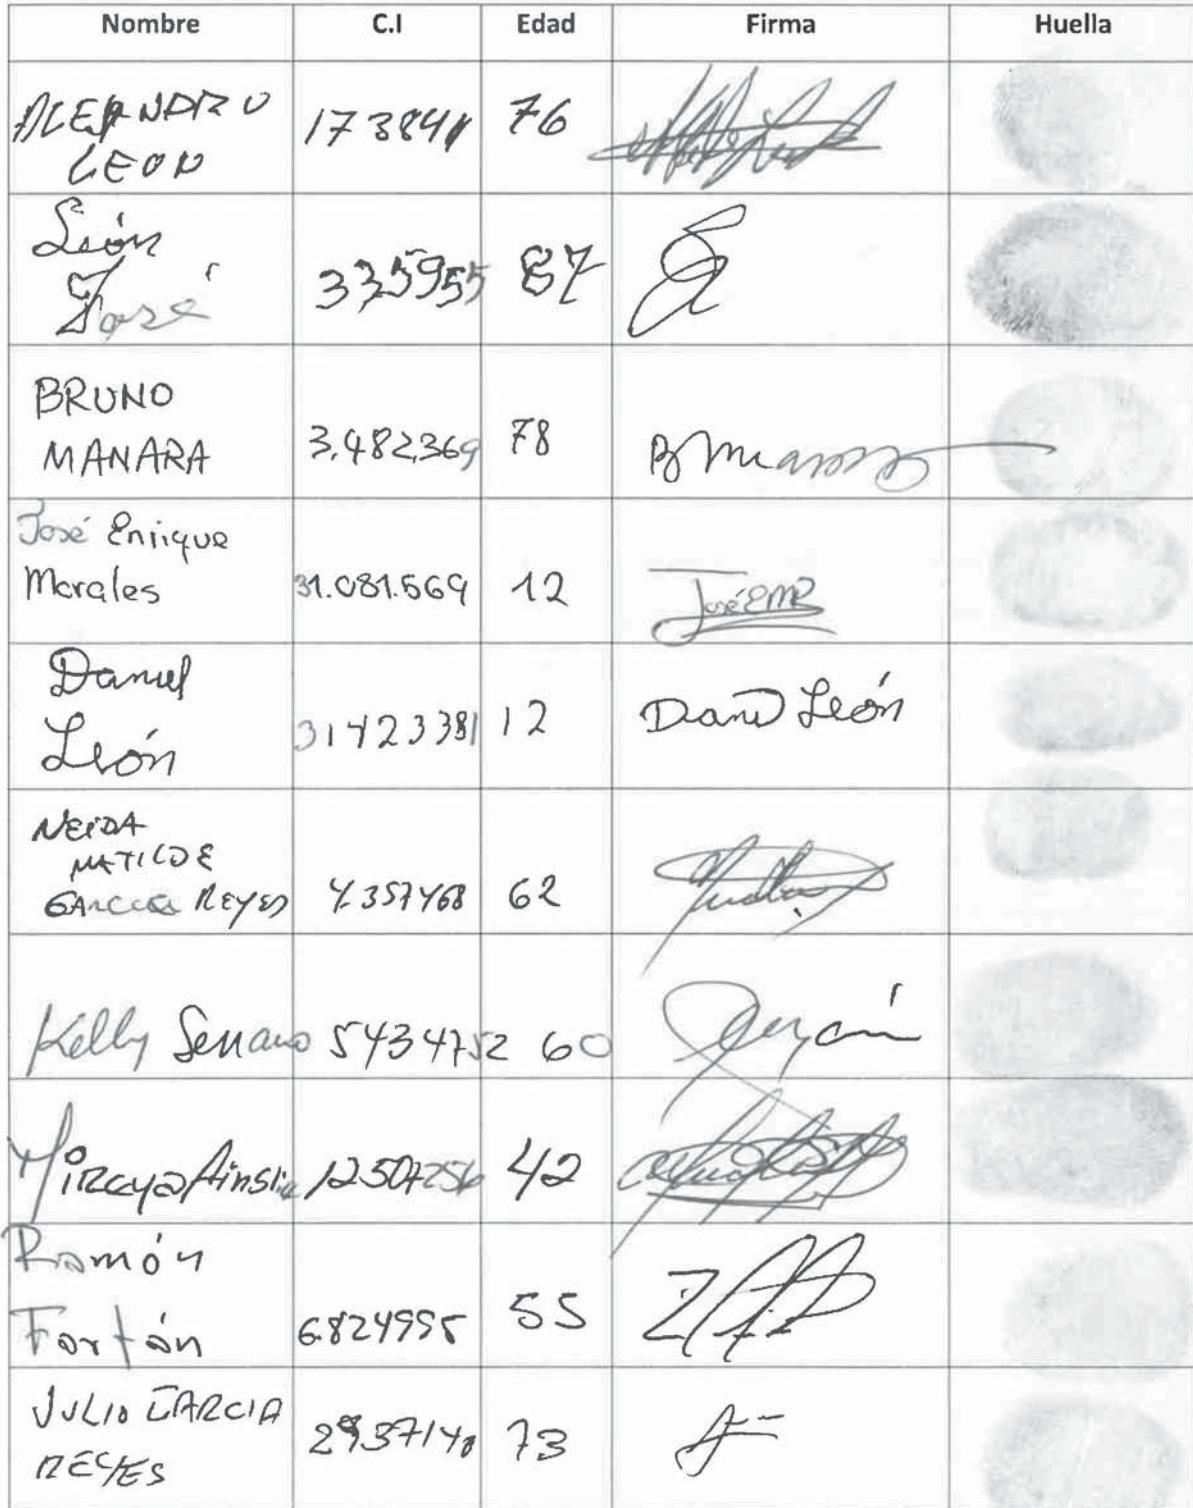 Nombre C.I Edad Firma Huella
ALEJANDRO
LEON
1738411 76
León
José
335955 87
BRUNO
MANARA
3.482.369 78
José Enrique
Morales
31.081.569 12 JoséEMR
Daniel
León
31423381 12 Daniel León
NEIDA
MATILDE
GARCIA REYES
4.357468 62
Kelly Serrano 5434752 60
Mireya Ainslie 12507256 42
Ramón
Fortán
6.824995 55
JULIO GARCIA
REYES
2937140 73